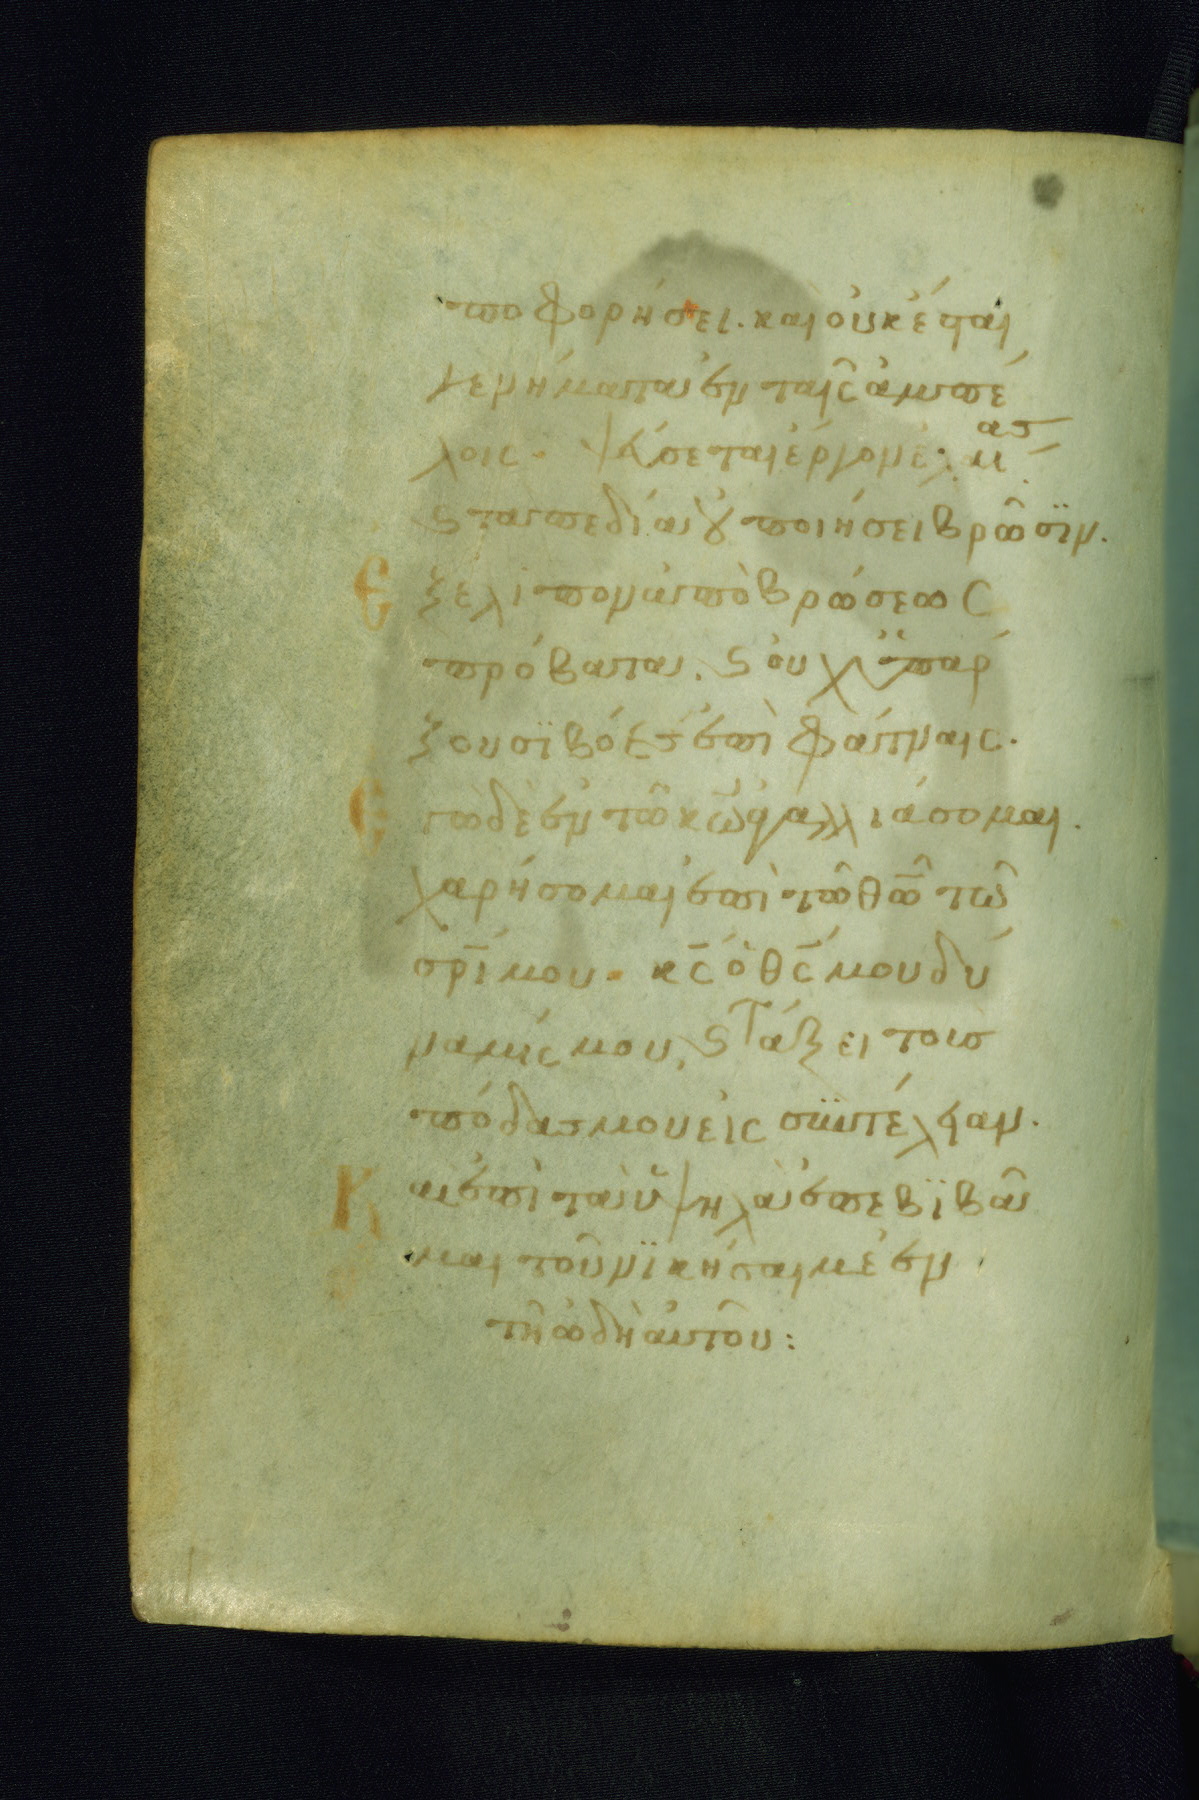 ποφορήσει. καὶ οὐκ έσται
γενήματα ἐν ταῖς ἀμπέ
λοις. ψεύσεται έργον ἐλαί
ας
ϛ τα πεδία οὐ ποιήσει βρῶσϊν.
Ἐ ξέλιπον ἀπὸ βρώσεως
πρόβατα, ϛ οὐχ ὑπάρ
ξουσϊ βόες ἐπὶ φάτναις.
Ἐ γὼ δὲ ἐν τῶ κω̅ ἀγαλλιάσομαι.
χαρήσομαι ἐπὶ τῶ θω̅ τῶ
σρ̅ί μου. κς̅ ὁ θς̅ μου δύ
ναμίς μου, ϛ τάξει τοὺσ
πόδασ μου εἰς συντέλειαν.
Κ αὶ ἐπὶ τὰ ὑψηλὰ ἐπεβϊβᾶ
με τοῦ νϊκήσαι με ἐν
τῆ ὠδῆ ἀυτοῦ: